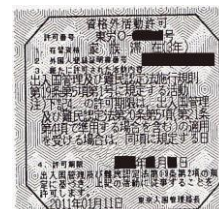 資格外活動許可
許可番号 東労0-
1. 在留資格 家族滞在(3年)
2. 外国人登録証明書番号
3. 新たに許可された活動内容
出入国管理及び難民認定法施行規則
第19条第5項第1号に規定する活動
注)下記4の許可期限は、出入国管理
及び難民認定法第20条第5項(第21条
第4項で準用する場合を含む)の適用
を受ける場合は、同項に規定する日
4. 許可期限 月 日
出入国管理及び難民認定法第19条第2項の規
定に基づき、上記の活動に従事することを
許可します。
2011年01月11日 東京入国管理局長